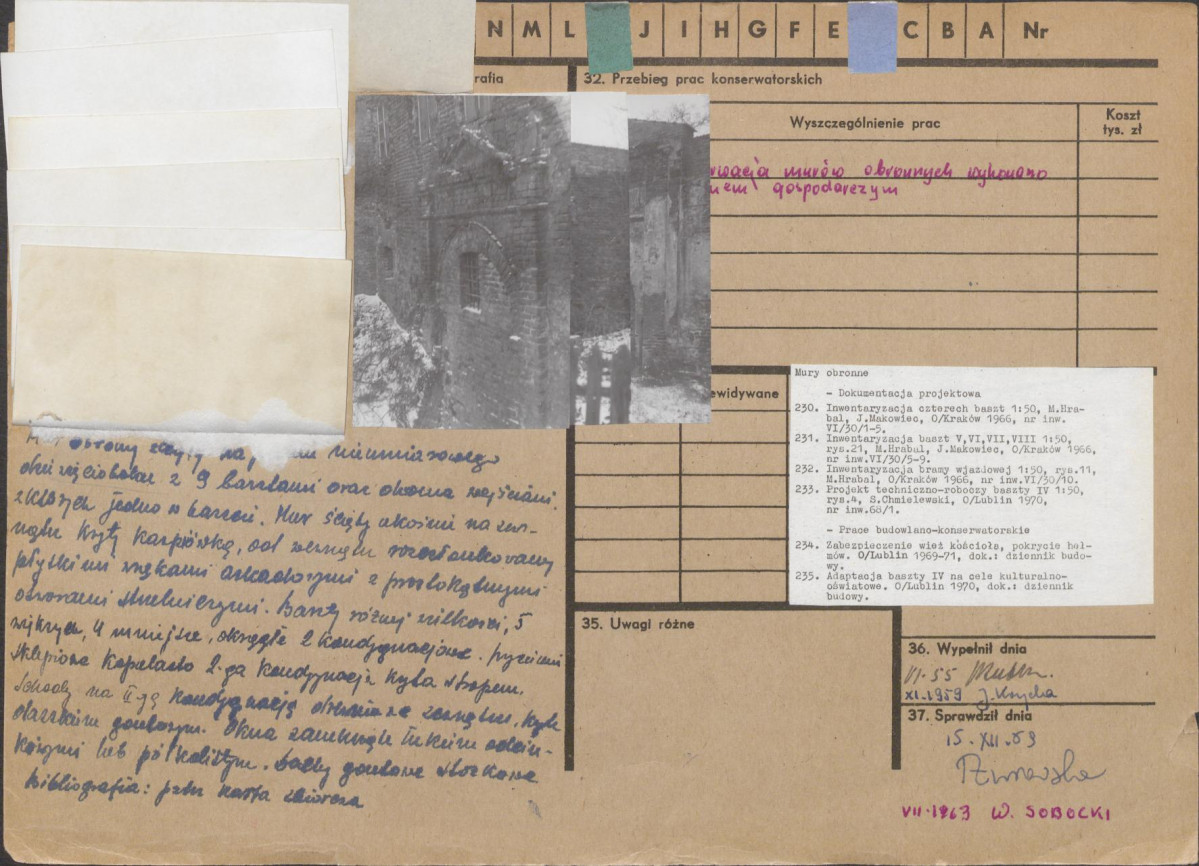 N M L J I H G F E C B A Nr
rafia
32. Przebieg prac konserwatorskich
Wyszczególnienie prac
Koszt
tys. zł
rwacja murów obronnych wykonano
mem gospodarczym
ewidywane
Mury obronne
- Dokumentacja projektowa
230. Inwentaryzacja czterech baszt 1:50, M.Hra-
bal, J.Makowiec, O/Kraków 1966, nr inw.
VI/30/1-5.
231. Inwentaryzacja baszt V,VI,VII,VIII 1:50,
rys.21, M.Hrabal, J.Makowiec, O/Kraków 1966,
nr inw.VI/30/5-9.
232. Inwentaryzacja bramy wjazdowej 1:50, rys.11,
M.Hrabal, O/Kraków 1966, nr inw.VI/30/10.
233. Projekt techniczno-roboczy baszty IV 1:50,
rys.4, S.Chmielewski, O/Lublin 1970,
nr inw.68/1.
- Prace budowlano-konserwatorskie
234. Zabezpieczenie wież kościoła, pokrycie heł-
mów. O/Lublin 1969-71, dok.: dziennik budo-
wy.
235. Adaptacja baszty IV na cele kulturalno-
oświatowe. O/Lublin 1970, dok.: dziennik
budowy.
obronny nieumiarowego
dziewięcioboku z 9 basztami oraz dwoma wejściami
z których jedno w baszcie. Mur ścięty ukośnie na zew-
nątrz kryty karpiówką, od wewnątrz rozczłonkowany
płytkimi wnękami arkadowymi z prostokątnymi
otworami strzelniczymi. Baszty różnej wielkości, 5
większych, 4 mniejsze, okrągłe 2 kondygnacjowe. Przyziemi
sklepione kopulasto 2-ga kondygnacja kryta stropem.
Schody na II-gą kondygnację drewniane zewnątrz, kryte
daszkiem gontowym. Okna zamknięte łukiem odcin-
kowymi lub półkolistym. Dachy gontowe stożkowe
Bibliografia: patrz karta zbiorcza
35. Uwagi różne
36. Wypełnił dnia
VI-55
XI.1959 J. Kręcka
37. Sprawdził dnia
15.XII.59
VII-1963 W. SOBOCKI